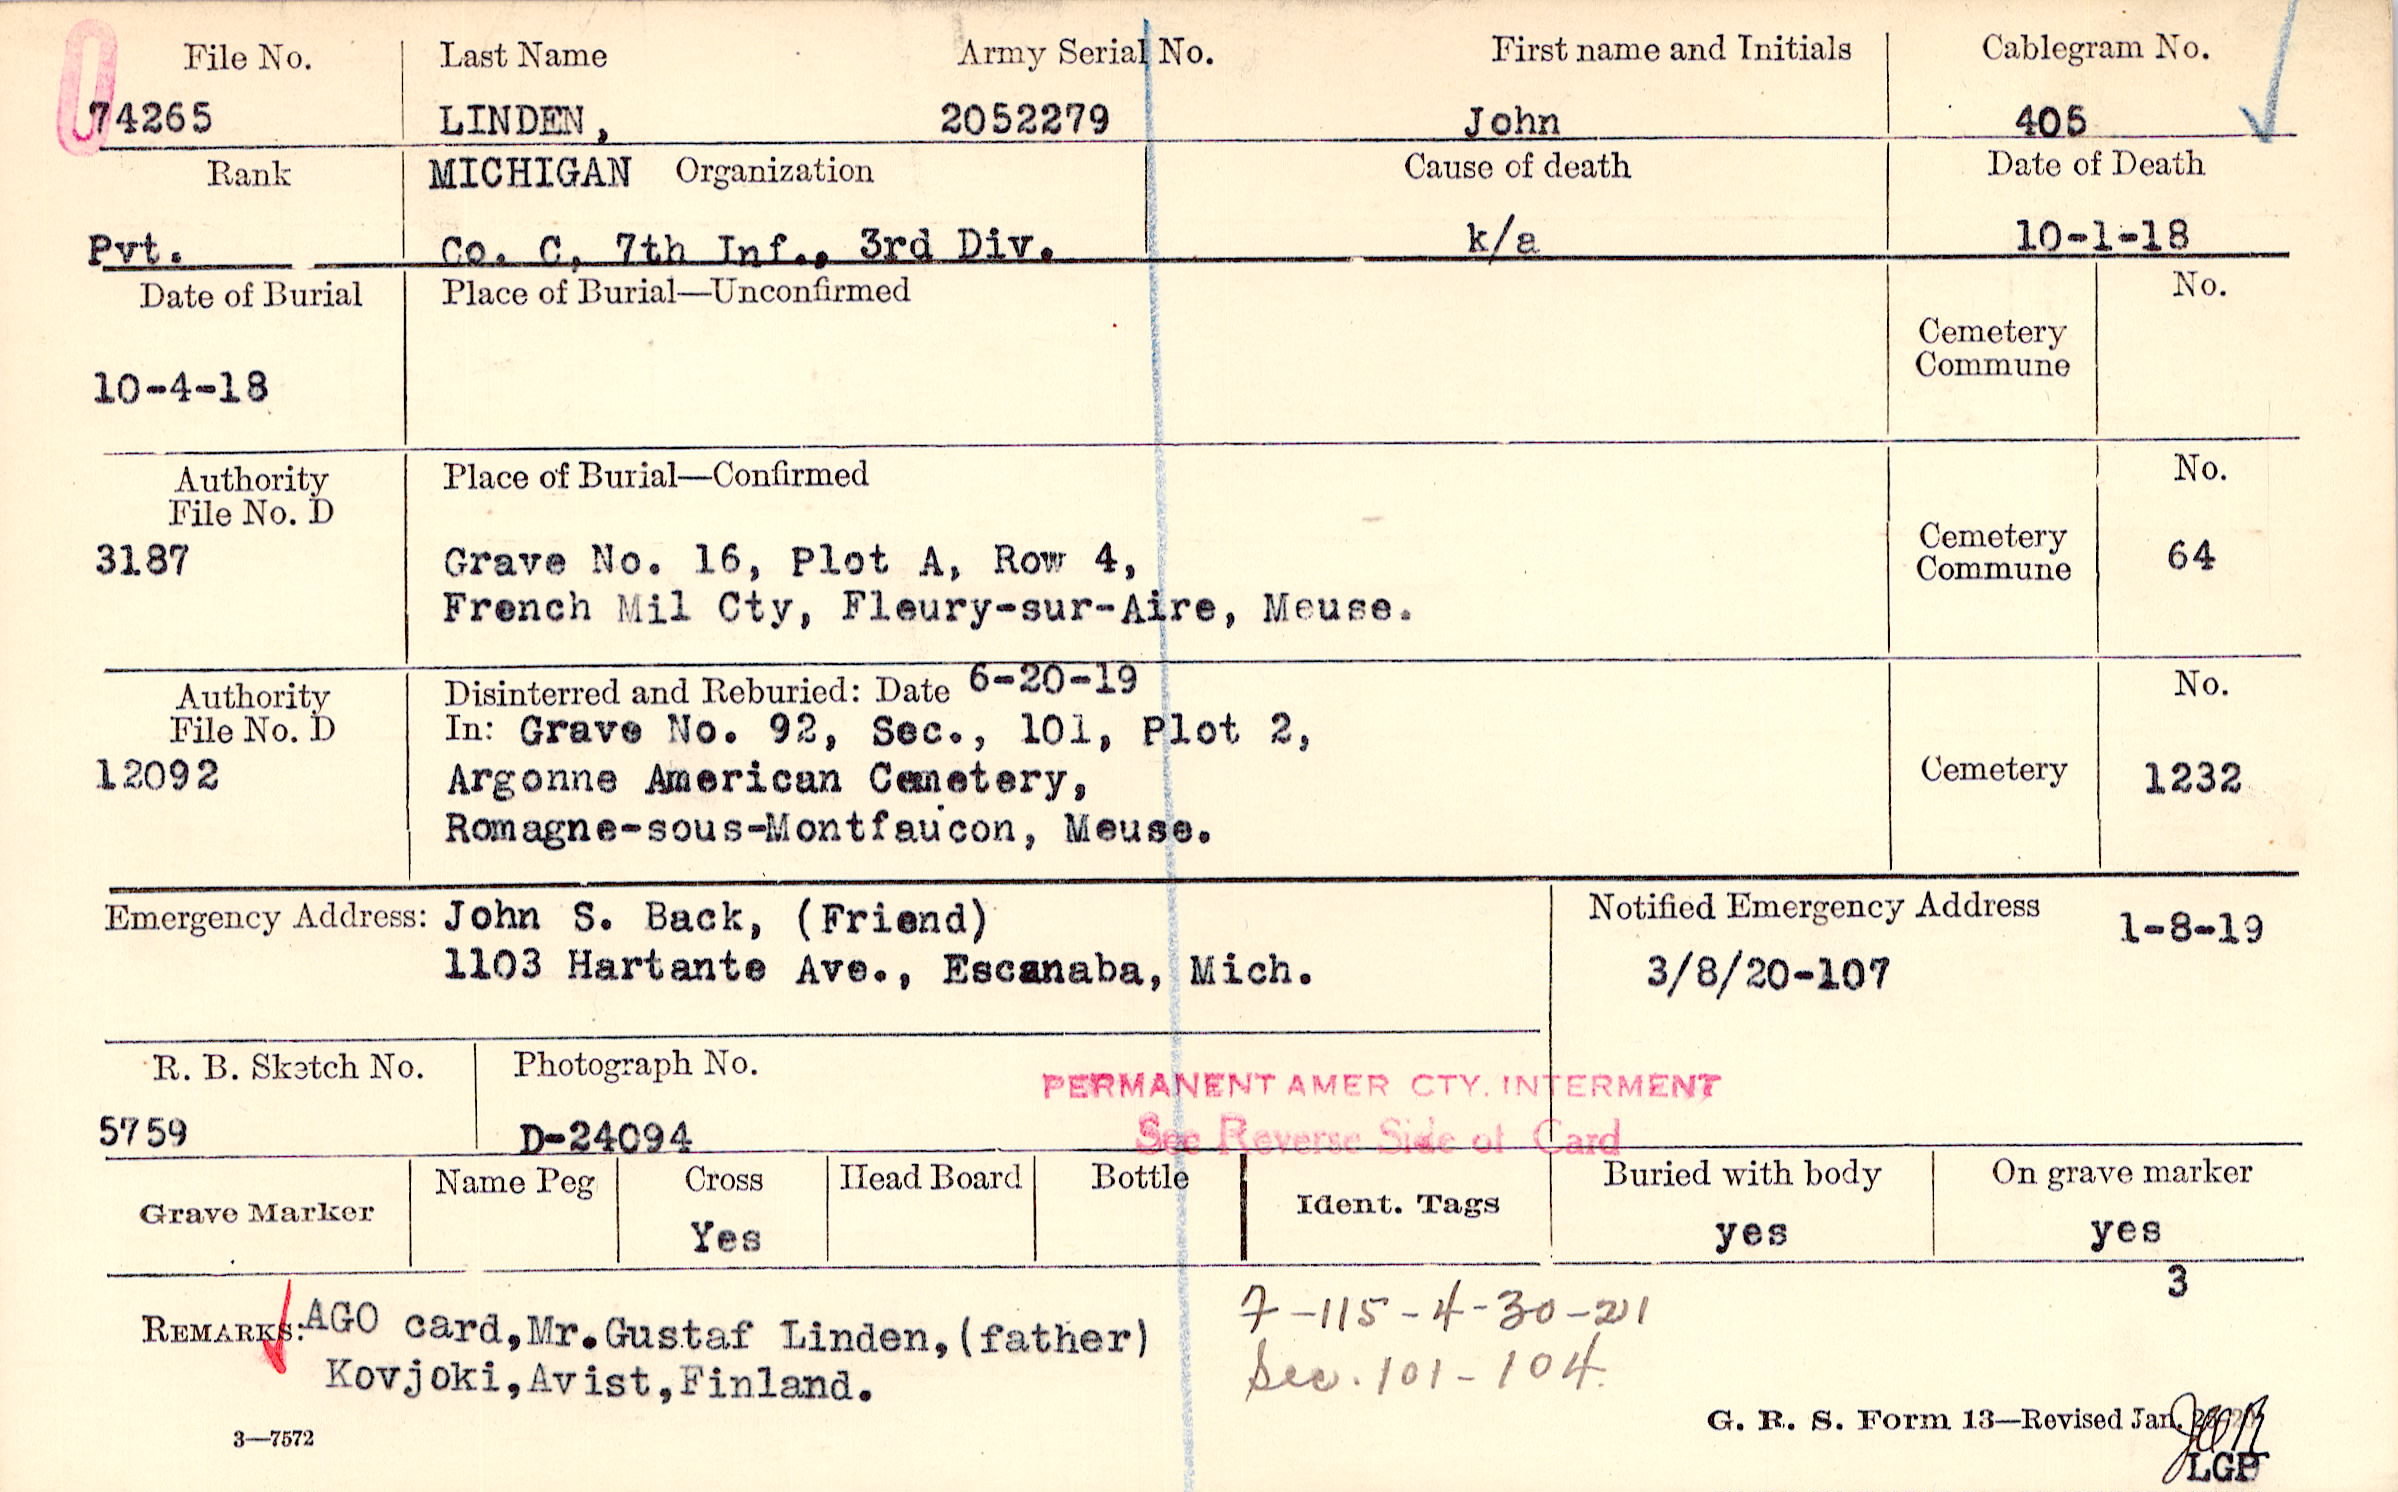 File No. Last Name Army Serial No. First name and Initials Cablegram No.
74265 LINDEN, 2052279 John 405
Rank MICHIGAN Organization Cause of death Date of Death
Pvt. Co. C, 7th Inf., 3rd Div. k/a 10-1-18
Date of Burial Place of Burial—Unconfirmed No.
Cemetery
Commune
10-4-18
Authority Place of Burial—Confirmed No.
File No. D
3187 Grave No. 16, Plot A, Row 4, Cemetery
Commune 64
French Mil Cty, Fleury-sur-Aire, Meuse.
Authority Disinterred and Reburied: Date 6-20-19 No.
File No. D In: Grave No. 92, Sec., 101, Plot 2,
12092 Argonne American Cemetery, Cemetery 1232
Romagne-sous-Montfaucon, Meuse.
Emergency Address: John S. Back, (Friend) Notified Emergency Address 1-8-19
1103 Hartante Ave., Escanaba, Mich. 3/8/20-107
R. B. Sketch No. Photograph No.
PERMANENT AMER CTY. INTERMENT
5759 D-24094 See Reverse Side of Card
Grave Marker Name Peg Cross Head Board Bottle Ident. Tags Buried with body On grave marker
Yes yes yes
3
REMARKS: AGO card,Mr.Gustaf Linden,(father) 7-115-4-30-21
Kovjoki,Avist,Finland. Sec. 101-104
G. R. S. Form 13—Revised Jan.
3—7572
LGP